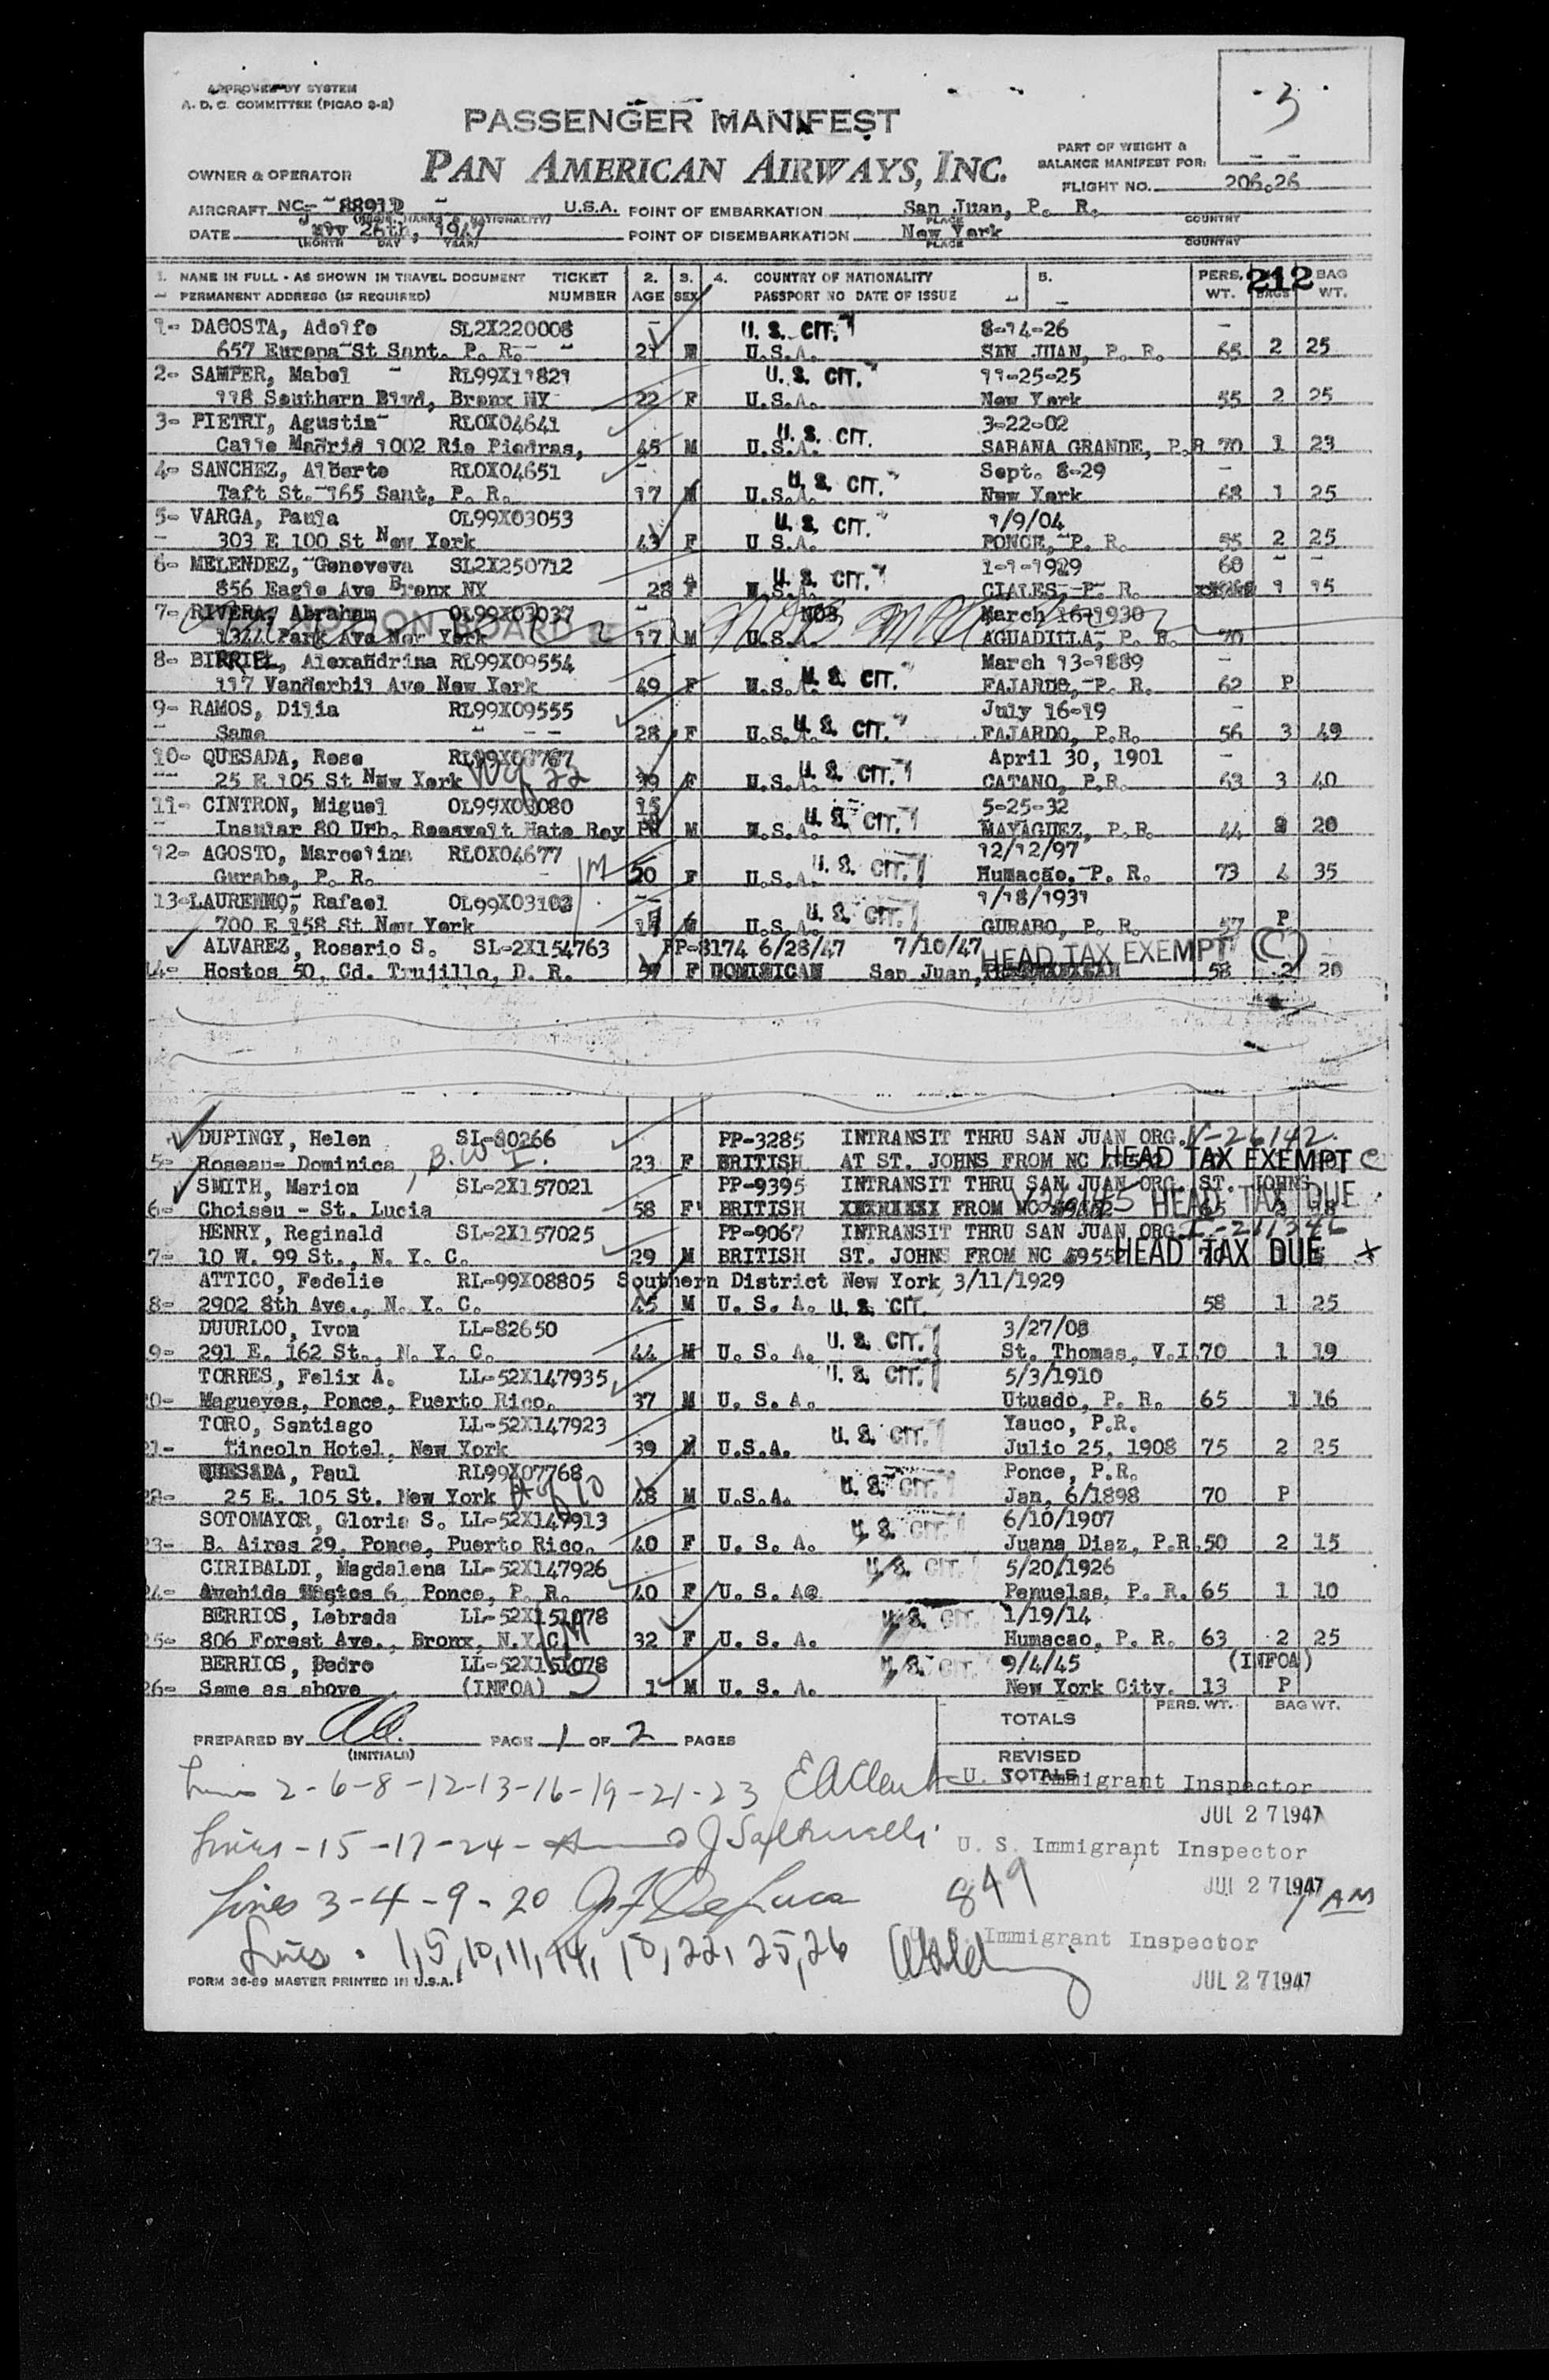 APPROVED BY SYSTEM
A. D. C. COMMITTEE (PICAO 2-2)
3
PASSENGER MANIFEST
PAN AMERICAN AIRWAYS, INC.
PART OF WEIGHT &
BALANCE MANIFEST FOR:
OWNER & OPERATOR
FLIGHT NO. 206.26
AIRCRAFT NC- U.S.A. POINT OF EMBARKATION San Juan, P. R.
PLACE COUNTRY
DATE 26th, 1947 POINT OF DISEMBARKATION New York
(MONTH DAY YEAR) PLACE COUNTRY
1. NAME IN FULL - AS SHOWN IN TRAVEL DOCUMENT TICKET 2. 3. 4. COUNTRY OF NATIONALITY 5. PERS. 212 BAG
PERMANENT ADDRESS (IF REQUIRED) NUMBER AGE SEX PASSPORT NO DATE OF ISSUE WT. BAGS WT.
1- DACOSTA, Adolfo SL2X220008 U. S. CIT. 8-14-26
657 Europa St Sant. P. R. 21 M U.S.A. SAN JUAN, P. R. 65 2 25
2- SAMPER, Mabel RL99X11821 U. S. CIT. 11-25-25
118 Southern Blvd, Bronx NY 22 F U.S.A. New York 55 2 25
3- PIETRI, Agustin RLOX04641 U. S. CIT. 3-22-02
Calle Madrid 1002 Rio Piedras, 45 M U.S.A. SABANA GRANDE, P.R 70 1 23
4- SANCHEZ, Alberto RLOX04651 U. S. CIT. Sept. 8-29
Taft St. 165 Sant, P. R. 17 M U.S.A. New York 68 1 25
5- VARGA, Paula OL99X03053 U. S. CIT. 1/9/04
303 E 100 St New York 43 F U S.A. PONCE, P. R. 55 2 25
6- MELENDEZ, Genoveva SL2X250712 U. S. CIT. 1-1-1929 60
856 Eagle Ave Bronx NY 28 F U.S.A. CIALES, P. R. 1 15
7- RIVERA, Abraham OL99X03037 NOB March 16-1930
1344 Park Ave New York 17 M U.S.A. AGUADILLA, P. R. 70
8- BIRRIEL, Alexandrina RL99X09554 March 13-1889
117 Vanderbil Ave New York 49 F U.S.A. U. S. CIT. FAJARDO, P. R. 62 P
9- RAMOS, Dilia RL99X09555 July 16-19
Same 28 F U.S.A. U. S. CIT. FAJARDO, P.R. 56 3 49
10- QUESADA, Rosa RL99X07767 April 30, 1901
25 E 105 St New York W of 22 39 F U.S.A. U. S. CIT. CATANO, P.R. 63 3 40
11- CINTRON, Miguel OL99X03080 15 5-25-32
Insular 80 Urb. Roosvelt Hato Rey PR M U.S.A. U. S. CIT. MAYAGUEZ, P. R. 44 2 20
12- AGOSTO, Marcelina RLOX04677 12/12/97
Gurabo, P. R. 50 F U.S.A. U. S. CIT. Humacao, P. R. 73 4 35
13- LAURENNO, Rafael OL99X03102 1/18/1931
700 E 158 St New York U.S.A. U. S. CIT. GURABO, P. R. 57 P
ALVAREZ, Rosario S. SL-2X154763 PP-8174 6/28/47 7/10/47 HEAD TAX EXEMPT (C)
14- Hostos 50, Cd. Trujillo, D. R. F DOMINICAN San Juan, 58 2 20
DUPINGY, Helen SL-80266 PP-3285 INTRANSIT THRU SAN JUAN ORG. V-26142
5- Roseau- Dominica, B. W. I. 23 F BRITISH AT ST. JOHNS FROM NC HEAD TAX EXEMPT C
SMITH, Marion SL-2X157021 PP-9395 INTRANSIT THRU SAN JUAN ORG. ST. JOHNS
6- Choiseu - St. Lucia 58 F BRITISH FROM NC HEAD TAX DUE
HENRY, Reginald SL-2X157025 PP-9067 INTRANSIT THRU SAN JUAN ORG.
7- 10 W. 99 St., N. Y. C. 29 M BRITISH ST. JOHNS FROM NC HEAD TAX DUE
ATTICO, Fedelie RL-99X08805 Southern District New York 3/11/1929
8- 2902 8th Ave., N. Y. C. 45 M U. S. A. U. S. CIT. 58 1 25
DUURLOO, Ivon LL-82650 3/27/03
9- 291 E. 162 St., N. Y. C. 44 M U. S. A. U. S. CIT. St. Thomas, V.I. 70 1 19
TORRES, Felix A. LL-52X147935 U. S. CIT. 5/3/1910
20- Magueyes, Ponce, Puerto Rico. 37 M U. S. A. Utuado, P. R. 65 1 16
TORO, Santiago LL-52X147923 Yauco, P.R.
21- Lincoln Hotel, New York 39 M U.S.A. U. S. CIT. Julio 25, 1908 75 2 25
QUESADA, Paul RL99X07768 Ponce, P.R.
22- 25 E. 105 St. New York H of 10 48 M U.S.A. U. S. CIT. Jan, 6/1898 70 P
SOTOMAYOR, Gloria S. LL-52X147913 6/10/1907
23- B. Aires 29, Ponce, Puerto Rico. 40 F U. S. A. U. S. CIT. Juana Diaz, P.R. 50 2 15
CIRIBALDI, Magdalena LL-52X147926 U. S. CIT. 5/20/1926
24- Avehida Hostos 6, Ponce, P. R. 40 F U. S. A@ Penuelas, P. R. 65 1 10
BERRIOS, Lebrada LL-52X151078 U. S. CIT. 1/19/14
25- 806 Forest Ave., Bronx, N.Y.C. 32 F U. S. A. Humacao, P. R. 63 2 25
BERRIOS, Pedro LL-52X151078 U. S. CIT. 9/4/45 (INFOA)
26- Same as above (INFOA) 1 M U. S. A. New York City. 13 P
TOTALS PERS. WT. BAG WT.
PREPARED BY PAGE 1 OF 2 PAGES
(INITIALS)
REVISED
TOTALS
Lines 2-6-8-12-13-16-19-21-23 U. S. Immigrant Inspector
JUL 27 1947
Lines -15-17-24- U. S. Immigrant Inspector
849 JUL 27 1947
Lines 3-4-9-20 AM
Lines 1,5,10,11,14,18,22,25,26 Immigrant Inspector
FORM 36-69 MASTER PRINTED IN U.S.A. JUL 27 1947